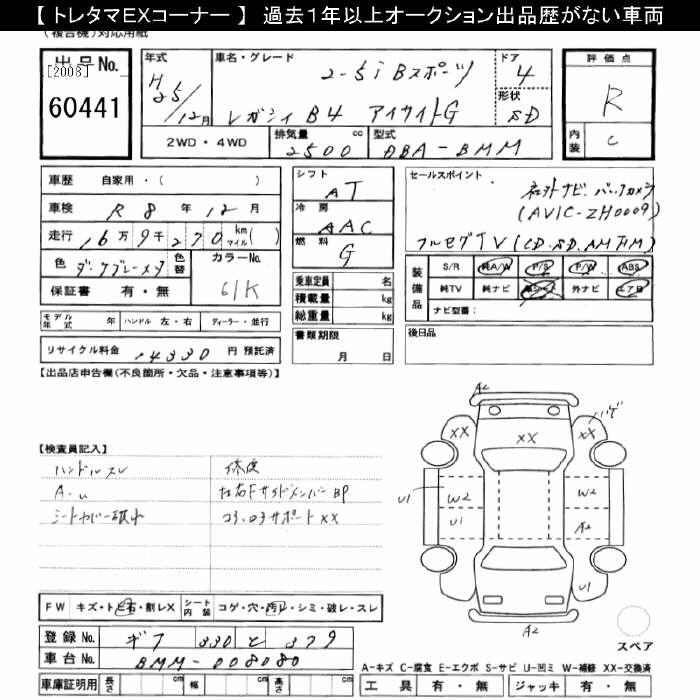 【 トレタマＥＸコーナー 】 過去１年以上オークション出品歴がない車両
(複合機) 対応用紙
出品No. [2008] 60441
年式 H25/12月
車名・グレード 2-5i Bスポーツ
レガシィ B4 アイサイトG
ドア 4
形状 SD
評価点 R
内装 C
2WD・4WD
排気量 2500 cc
型式 DBA-BMM
車歴 自家用・( )
車検 R 8年 12月
走行 16万9千270 km マイル( )
色 ダークグレーメタ 色替
カラーNo. 61K
保証書 有・無
モデル年式 年 ハンドル 左・右 ディーラー・並行
リサイクル料金 14330 円 預託済
シフト AT
冷房 AAC
燃料 G
乗車定員 名
積載量 kg
総重量 kg
書類期限 月 日
セールスポイント 社外ナビ.バックカメラ
(AVIC-ZH0009)
フルセグTV (CD.SD.AM FM)
装備品 S/R 純A/W P/S P/W ABS
純TV 純ナビ 革シート 外ナビ エアB
ナビ型番:
後日品
【出品店申告欄(不良箇所・欠品・注意事項等)】
【検査員記入】
ハンドルスレ
A-u
シートカバー破れ
修復
左右FサイドメンバーBP
コア.ロアサポートXX
A2
XX
XX
XX
ハゲ
U1
W2
U1
W2
A2
U1
A2
スペア
FW キズ・トビ石・割レX シート内装 コゲ・穴・汚レ・シミ・破レ・スレ
登録No. ギフ 330 と 379
車台No. BMM-008080
車庫証明用 長さ cm 幅 cm 高さ cm
A-キズ C-腐食 E-エクボ S-サビ U-凹ミ W-補修 XX-交換済
工具 有・無 ジャッキ 有・無